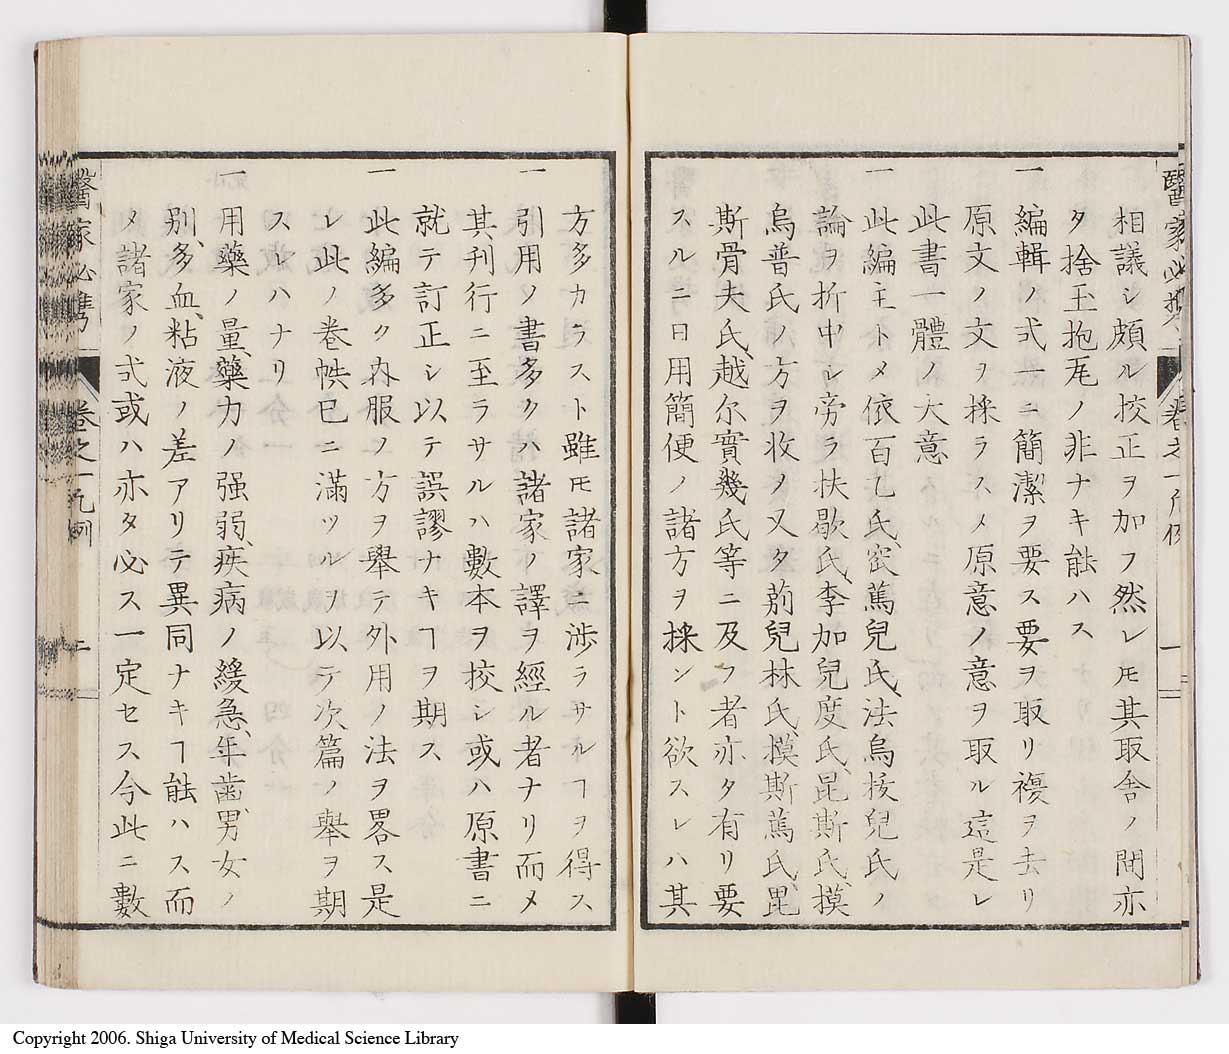 醫家必携
卷之一凡例
一
相議シ頗ル校正ヲ加フ然レㇳモ其取舎ノ間亦
タ捨玉抱瓦ノ非ナキ能ハス
一編輯ノ式一ニ簡潔ヲ要ス要ヲ取リ複ヲ去リ
原文ノ文ヲ採ラスメ原意ノ意ヲ取ル這是レ
此書一體ノ大意
一此編主トメ依百乙氏窊篤兒氏法烏挼兒氏ノ
論ヲ折中シ旁ラ扶歇氏李加兒度氏昆斯氏摸
烏普氏ノ方ヲ收メ又タ葪兒林氏模斯篤氏毘
斯骨夫氏越尓實幾氏等ニ及フ者亦タ有リ要
スルニ日用簡便ノ諸方ヲ採ント欲スレハ其
方多カラスト雖モ諸家ニ渉ラサルヿヲ得ス
一引用ノ書多クハ諸家ノ譯ヲ經ル者ナリ而メ
其刊行ニ至ラサルハ數本ヲ校シ或ハ原書ニ
就テ訂正シ以テ誤謬ナキヿヲ期ス
一此編多ク内服ノ方ヲ舉テ外用ノ法ヲ畧ス是
レ此ノ卷帙已ニ滿ツルヲ以テ次篇ノ舉ヲ期
スレハナリ
一用藥ノ量藥力ノ强弱疾病ノ緩急年齒男女ノ
別多血粘液ノ差アリテ異同ナキヿ能ハス而
メ諸家ノ式或ハ亦タ必ス一定セス今此ニ數
醫家必携
卷之一凡例
二
Copyright 2006. Shiga University of Medical Science Library